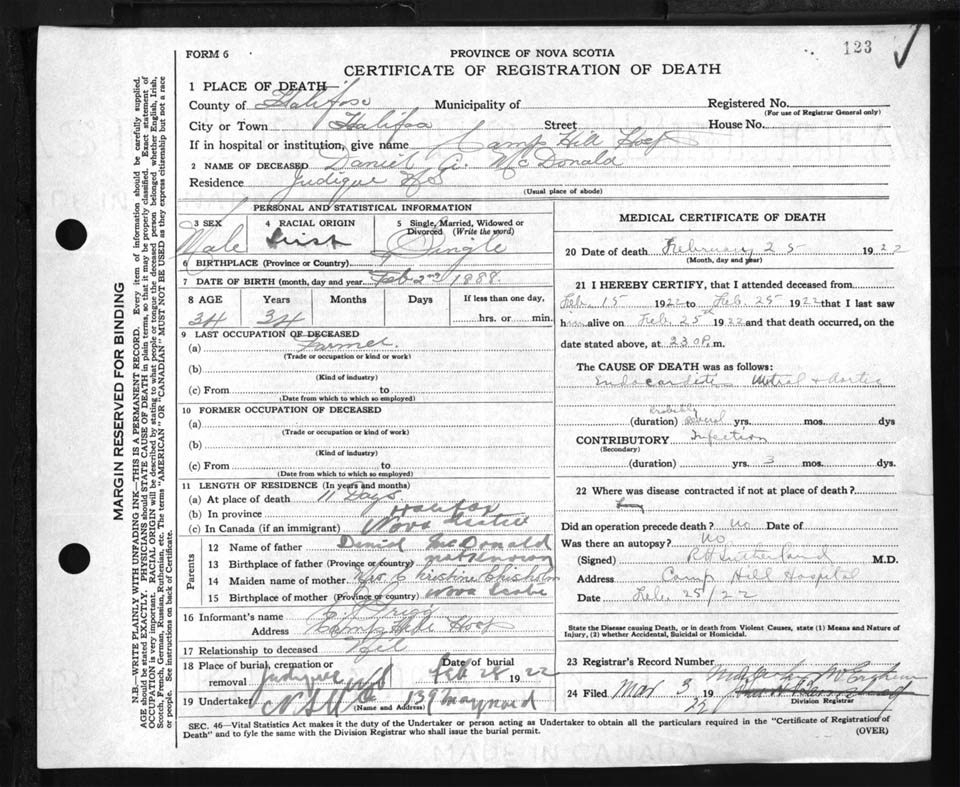 123
FORM 6
PROVINCE OF NOVA SCOTIA
CERTIFICATE OF REGISTRATION OF DEATH
1 PLACE OF DEATH—
County of Halifax Municipality of
Registered No.
(For use of Registrar General only)
City or Town Halifax Street House No.
If in hospital or institution, give name Camp Hill Hosp
2 NAME OF DECEASED Daniel A. McDonald
Residence Judique NS
(Usual place of abode)
PERSONAL AND STATISTICAL INFORMATION
3 SEX 4 RACIAL ORIGIN 5 Single, Married, Widowed or Divorced (Write the word)
Male Irish Single
6 BIRTHPLACE (Province or Country)
7 DATE OF BIRTH (month, day and year) Feb 2nd 1888.
8 AGE Years Months Days If less than one day,
34 34 hrs. or min.
9 LAST OCCUPATION OF DECEASED
(a) Farmer.
(Trade or occupation or kind of work)
(b)
(Kind of industry)
(c) From to
(Date from which to which so employed)
10 FORMER OCCUPATION OF DECEASED
(a)
(Trade or occupation or kind of work)
(b)
(Kind of industry)
(c) From to
(Date from which to which so employed)
11 LENGTH OF RESIDENCE (In years and months)
(a) At place of death 11 Days
(b) In province Halifax
(c) In Canada (if an immigrant) Nova Scotia
Parents
12 Name of father McDonald
13 Birthplace of father (Province or country) not known
14 Maiden name of mother Mrs Christine Chisholm
15 Birthplace of mother (Province or country) Nova Scotia
16 Informant's name
Address Camp Hill Hosp
17 Relationship to deceased
18 Place of burial, cremation or removal Judique Date of burial Feb 28 1922
19 Undertaker 139 Maynard
(Name and Address)
MEDICAL CERTIFICATE OF DEATH
20 Date of death February 25 1922
(Month, day and year)
21 I HEREBY CERTIFY, that I attended deceased from
Feb. 15 1922 to Feb. 25 1922 that I last saw
him alive on Feb 25th 1922 and that death occurred, on the
date stated above, at 230 P. m.
The CAUSE OF DEATH was as follows:
Endocarditis Mitral & Aortic
probably
(duration) several yrs. mos. dys
CONTRIBUTORY Infection
(Secondary)
(duration) yrs. 3 mos. dys.
22 Where was disease contracted if not at place of death?
Did an operation precede death? no Date of
Was there an autopsy? No
(Signed) Sutherland M.D.
Address Camp Hill Hospital
Date Feb. 25/22
State the Disease causing Death, or in death from Violent Causes, state (1) Means and Nature of
Injury, (2) whether Accidental, Suicidal or Homicidal.
23 Registrar's Record Number
24 Filed Mar 3 1922
Division Registrar
SEC. 46—Vital Statistics Act makes it the duty of the Undertaker or person acting as Undertaker to obtain all the particulars required in the "Certificate of Registration of
Death" and to fyle the same with the Division Registrar who shall issue the burial permit. (OVER)
MARGIN RESERVED FOR BINDING
N.B.—WRITE PLAINLY WITH UNFADING INK—THIS IS A PERMANENT RECORD. Every item of information should be carefully supplied.
AGE should be stated EXACTLY. PHYSICIANS should STATE CAUSE OF DEATH in plain terms, so that it may be properly classified. Exact statement of
OCCUPATION is very important. RACIAL ORIGIN will be described by stating to what people or tongue the deceased person belonged whether English, Irish,
Scotch, French, German, Russian, Ruthenian, etc. The terms "AMERICAN" OR "CANADIAN" MUST NOT BE USED as they express citizenship but not a race
or people. See instructions on back of Certificate.